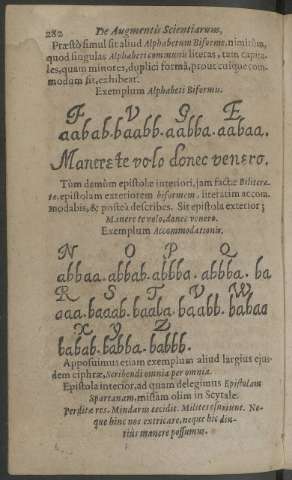 282 De Augmentis Scientiarum,
Præstò simul sit aliud Alphabetum Biforme, nimirùm,
quod singulas Alphabeti communis literas, tam capita-
les, quam minores, duplici formâ, prout cuique com-
modum sit, exhibeat.
Exemplum Alphabeti Biformis.
F V G E
aabab. baabb. aabba. aabaa.
Manere te volo donec venero.
Tùm demùm epistolæ interiori, jam factæ Bilitera-
tæ, epistolam exteriorem biformem, literatim accom-
modabis, & posteà describes. Sit epistola exterior;
Manere te volo, donec venero.
Exemplum Accommodationis.
N O P Q
abbaa. abbab. abbba. abbba. ba
R S T V W
aaa. baaab. baaba. baabb. babaa
X Y Z
babab. babba. babbb.
Apposuimus etiam exemplum aliud largius ejus-
dem ciphræ, Scribendi omnia per omnia.
Epistola interior, ad quam delegimus Epistolam
Spartanam, missam olim in Scytale.
Perditæ res. Mindarus cecidit. Milites esuriunt. Ne-
que hinc nos extricare, neque hic diu-
tiùs manere possumus.